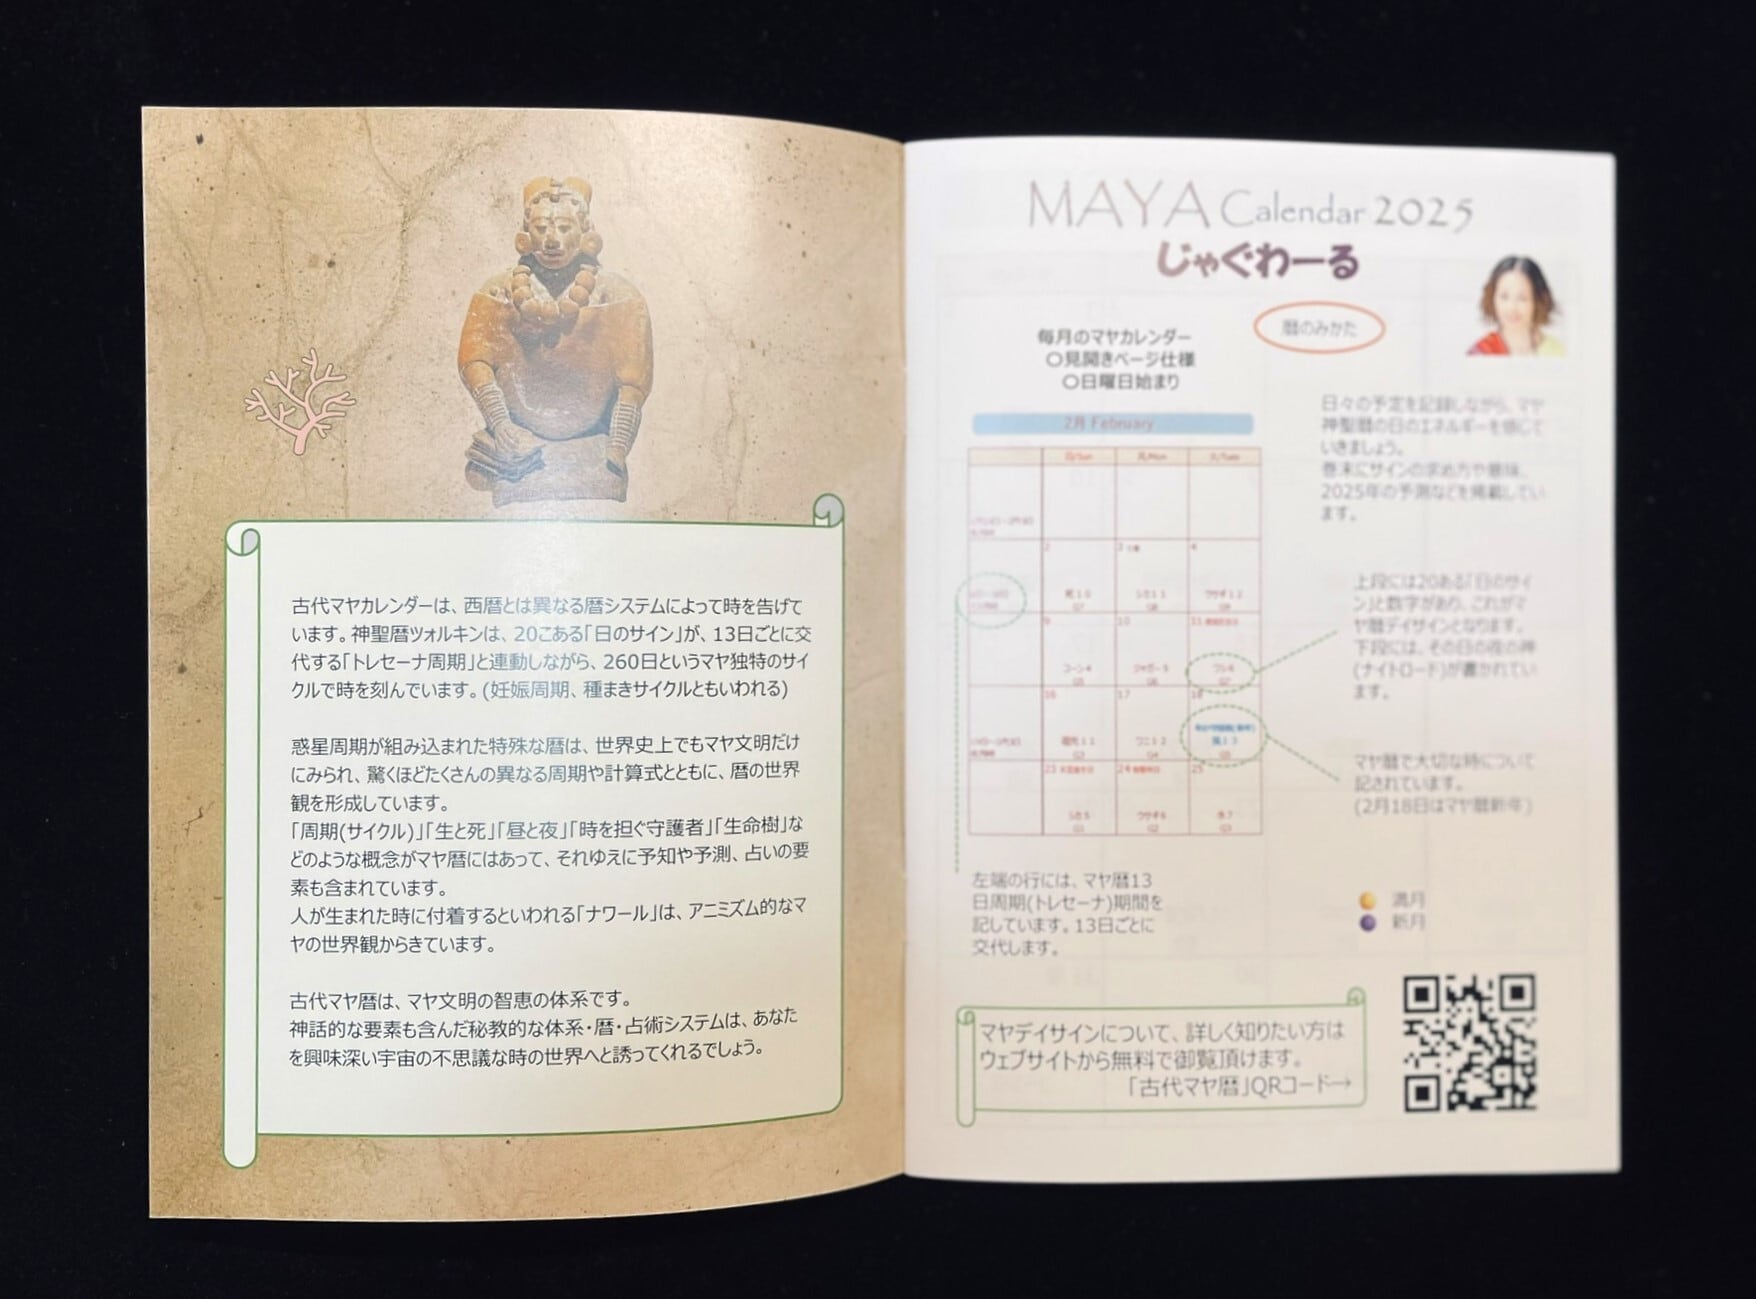 古代マヤカレンダーは、西暦とは異なる暦システムによって時を告げて
います。神聖暦ツォルキンは、20こある「日のサイン」が、13日ごとに交
代する「トレセーナ周期」と連動しながら、260日というマヤ独特のサイ
クルで時を刻んでいます。(妊娠周期、種まきサイクルともいわれる)
惑星周期が組み込まれた特殊な暦は、世界史上でもマヤ文明だけ
にみられ、驚くほどたくさんの異なる周期や計算式とともに、暦の世界
観を形成しています。
「周期(サイクル)」「生と死」「昼と夜」「時を担ぐ守護者」「生命樹」な
どのような概念がマヤ暦にはあって、それゆえに予知や予測、占いの要
素も含まれています。
人が生まれた時に付着するといわれる「ナワール」は、アニミズム的なマ
ヤの世界観からきています。
古代マヤ暦は、マヤ文明の智恵の体系です。
神話的な要素も含んだ秘教的な体系・暦・占術システムは、あなた
を興味深い宇宙の不思議な時の世界へと誘ってくれるでしょう。
MAYA Calendar 2025
じゃぐわーる
暦のみかた
毎月のマヤカレンダー
〇見開きページ仕様
〇日曜日始まり
日々の予定を記録しながら、マヤ
神聖暦の日のエネルギーを感じて
いきましょう。
巻末にサインの求め方や意味、
2025年の予測などを掲載してい
ます。
2月 February
日/Sun 月/Mon 火/Tues
2 3 4
死10 シカ11 ウサギ12
G7 G8 G9
9 10 11
コーン4 ジャガー5 ワシ6
G5 G6 G7
16 17 18
ワニ12 風13
G3 G4 G5
23 24 25
シカ5 ウサギ6 水7
G1 G2 G3
上段には20ある「日のサイ
ン」と数字があり、これがマ
ヤ暦デイサインとなります。
下段には、その日の夜の神
(ナイトロード)が書かれてい
ます。
マヤ暦で大切な時について
記されています。
(2月18日はマヤ暦新年)
左端の行には、マヤ暦13
日周期(トレセーナ)期間を
記しています。13日ごとに
交代します。
満月
新月
マヤデイサインについて、詳しく知りたい方は
ウェブサイトから無料で御覧頂けます。
「古代マヤ暦」QRコード→